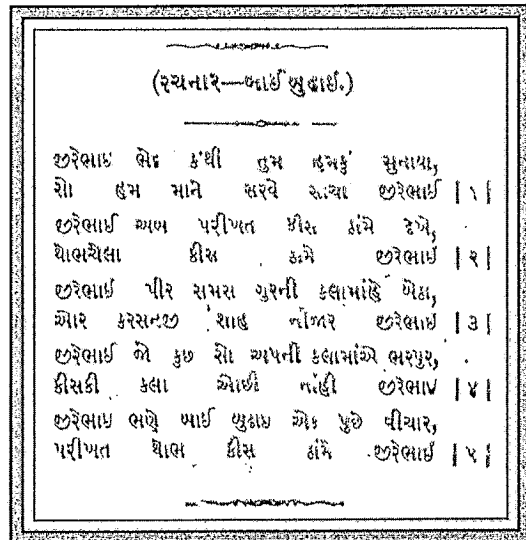 (રચનાર—બાઈ બુઢાઈ.)
જીરેભાઇ ભેદ કંથી તુમ હમકું સુનાયા,
સો હમ માને સરવે સાચા જીરેભાઈ |૧|
જીરેભાઈ અબ પરીખત કીસ ઠાંમે દેખે,
થોભચેલા કીસ ઠામે જીરેભાઈ |૨|
જીરેભાઈ પીર સમસ ગુરની કલામાંહે બેઠા,
ઓર કરસનજી શાહ નીજાર જીરેભાઈ |૩|
જીરેભાઈ જે કુછ સો અપની કલામાંએ ભરપુર,
કીસકી કલા ઓછી નાંહી જીરેભાઈ |૪|
જીરેભાઇ ભણે બાઈ બુઢાઇ એક પુછે વીચાર,
પરીખત થોભ કીસ ઠાંમે જીરેભાઈ |૫|